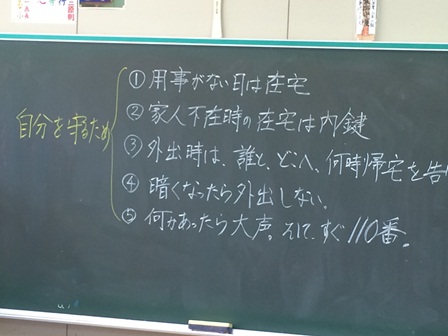 自分を守るため
① 用事がない日は在宅
② 家人不在時の在宅は内鍵
③ 外出時は、誰と、どこへ、何時帰宅を告
④ 暗くなったら外出しない。
⑤ 何かあったら大声。そして、すぐ110番。